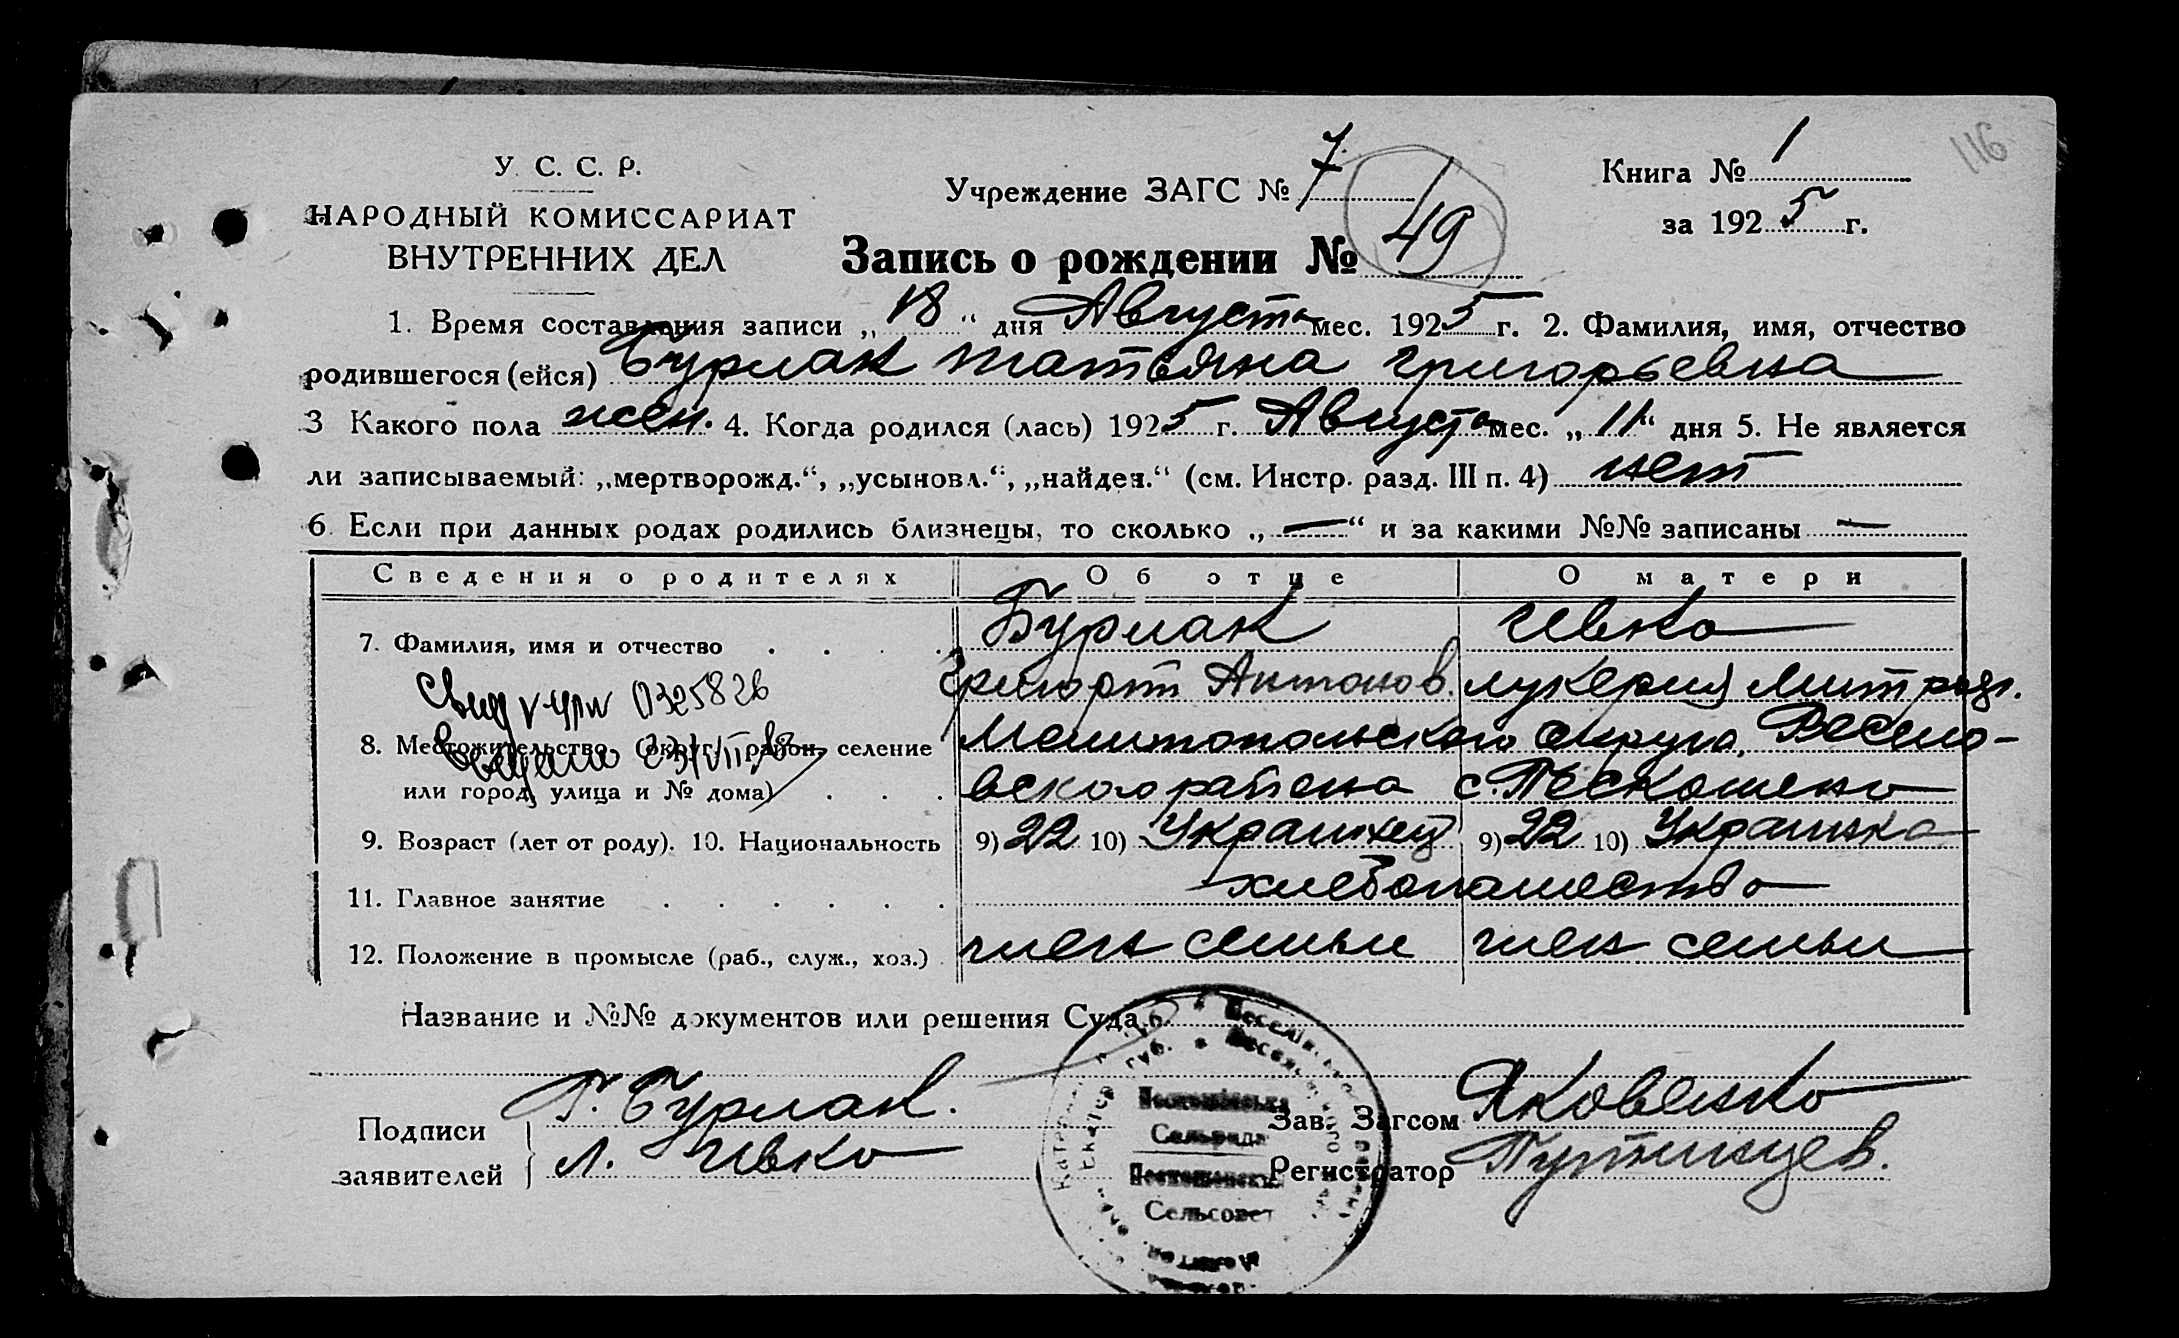 116
У. С. С. Р.
НАРОДНЫЙ КОМИССАРИАТ
ВНУТРЕННИХ ДЕЛ
Учреждение ЗАГС № 7
Книга № 1
за 1925 г.
Запись о рождении № 49
1. Время составления записи „18“ дня Августа мес. 1925 г. 2. Фамилия, имя, отчество
родившегося (ейся) Бурлак татьяна григорьевна
3 Какого пола жен. 4. Когда родился (лась) 1925 г. Августа мес. „11“ дня 5. Не является
ли записываемый: „мертворожд.“, „усыновл.“, „найден.“ (см. Инстр. разд. III п. 4) нет
6. Если при данных родах родились близнецы, то сколько „—“ и за какими №№ записаны —
Сведения о родителях Об отце О матери
7. Фамилия, имя и отчество Бурлак Ивко
григорий Антонов. лукерия Митроф.
0325826
8. Местожительство (округ, район, селение Мелитопольского округа, Весело-
или город, улица и № дома) вского района с. Пескошено
9. Возраст (лет от роду). 10. Национальность 9) 22 10) Украинец 9) 22 10) Украинка
11. Главное занятие хлебопашество
12. Положение в промысле (раб., служ., хоз.) член семьи член семьи
Название и №№ документов или решения Суда
Подписи
заявителей
Г. Бурлак.
Л. Ивко
Зав. Загсом Яковенко
Регистратор Путинцев.
Сельрада
Сельсовет